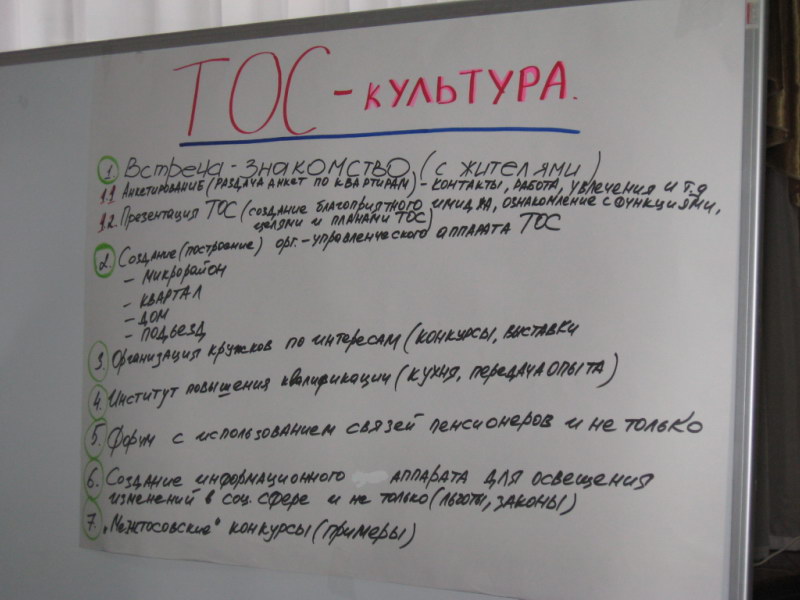 ТОС - КУЛЬТУРА.
1. Встреча - ЗНАКОМСТВО (С ЖИТЕЛЯМИ)
1.1 Анкетирование (раздача анкет по квартирам) - контакты, работа, увлечения и т.д
1.2. Презентация ТОС (создание благоприятного имиджа, ознакомление с функциями,
целями и планами ТОС)
2. Создание (построение) орг.-управленческого аппарата ТОС
- микрорайон
- КВАРТАЛ
- ДОМ
- ПОДЬЕЗД
3. Организация кружков по интересам (конкурсы, выставки
4. Институт повышения квалификации (кухня, передача опыта)
5. Форум с использованием связей пенсионеров и не только
6. Создание информационного аппарата для освещения
изменений в соц. сфере и не только (льготы, законы)
7. „Межтосовские" конкурсы (примеры)